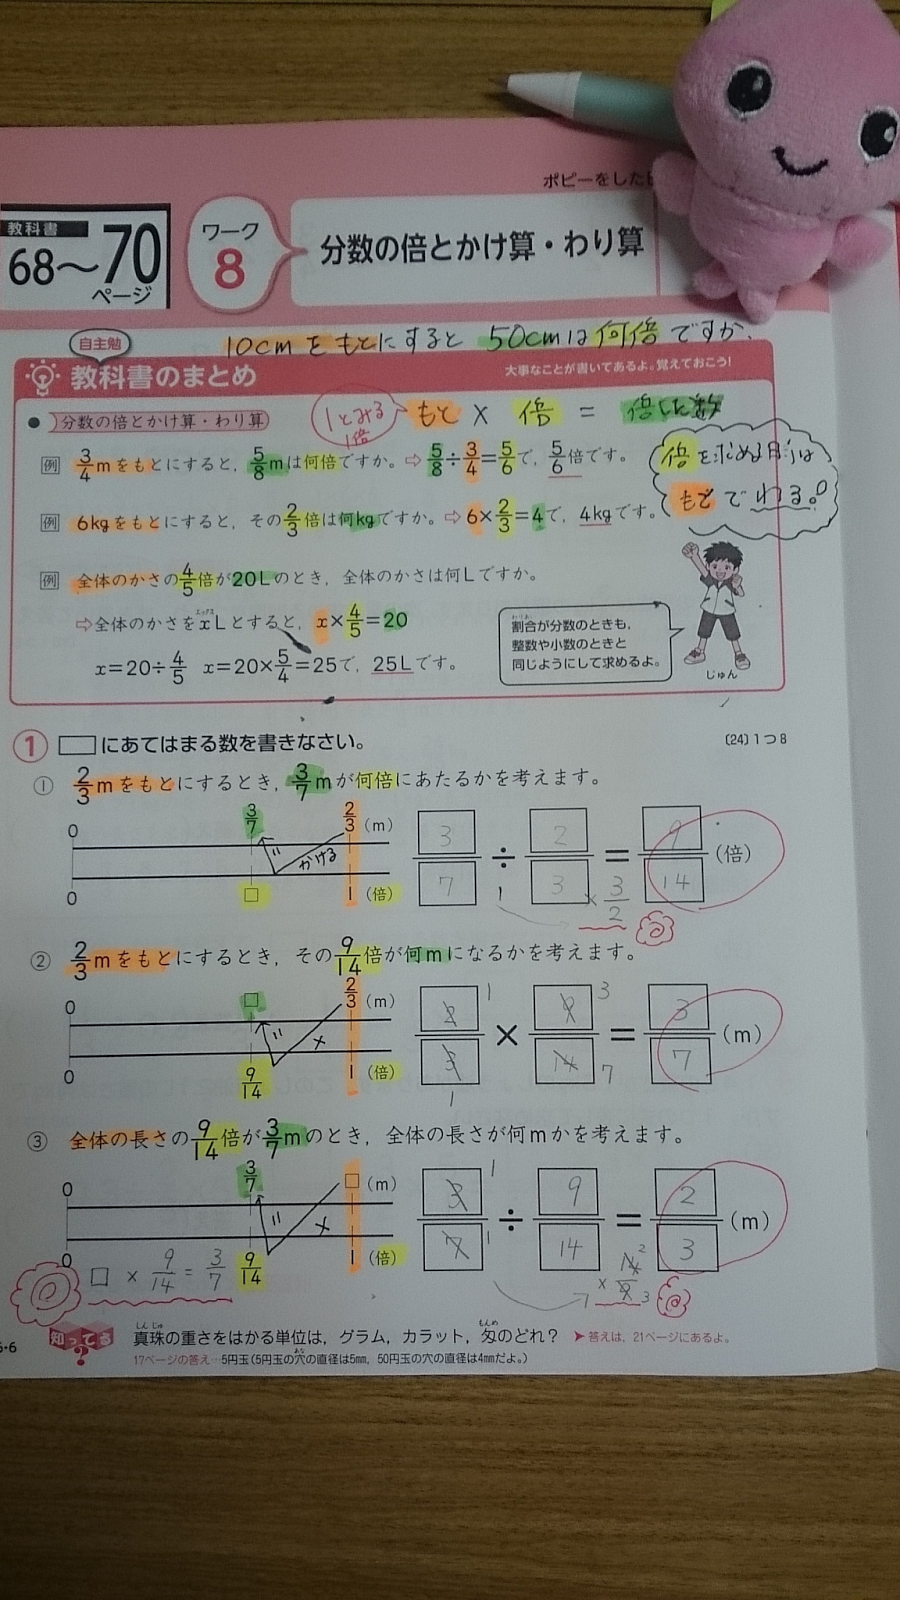 ポピーをした
教科書
68〜70
ページ
ワーク
8
分数の倍とかけ算・わり算
10cmをもとにすると 50cmは何倍ですか.
自主勉
教科書のまとめ
大事なことが書いてあるよ。覚えておこう!
分数の倍とかけ算・わり算
1とみる
1倍
もと × 倍 = 倍した数
例 3/4mをもとにすると，5/8mは何倍ですか。⇨5/8÷3/4=5/6で，5/6倍です。
例 6kgをもとにすると，その2/3倍は何kgですか。⇨6×2/3=4で，4kgです。
倍を求める時は
もとでわる。
例 全体のかさの4/5倍が20Lのとき，全体のかさは何Lですか。
エックス
⇨全体のかさをxLとすると，x×4/5=20
x=20÷4/5 x=20×5/4=25で，25Lです。
わりあい
割合が分数のときも，
整数や小数のときと
同じようにして求めるよ。
じゅん
1 □にあてはまる数を書きなさい。
(24)1つ8
① 2/3mをもとにするとき，3/7mが何倍にあたるかを考えます。
0 3/7 2/3 (m)
= かける
0 □ 1 (倍)
3/7 ÷ 2/3 = 9/14 (倍)
1 × 3/2
② 2/3mをもとにするとき，その9/14倍が何mになるかを考えます。
0 □ 2/3 (m)
= ×
0 9/14 1 (倍)
2/3 × 9/14 = 3/7 (m)
1 3
1 7
③ 全体の長さの9/14倍が3/7mのとき，全体の長さが何mかを考えます。
0 3/7 □ (m)
= ×
0 9/14 1 (倍)
□ × 9/14 = 3/7
3/7 ÷ 9/14 = 2/3 (m)
1
1
× 14/9 2 3
知ってる?
しんじゅ もんめ
真珠の重さをはかる単位は，グラム，カラット，匁のどれ?
➤答えは，21ページにあるよ。
あな
17ページの答え…5円玉(5円玉の穴の直径は5mm，50円玉の穴の直径は4mmだよ。)